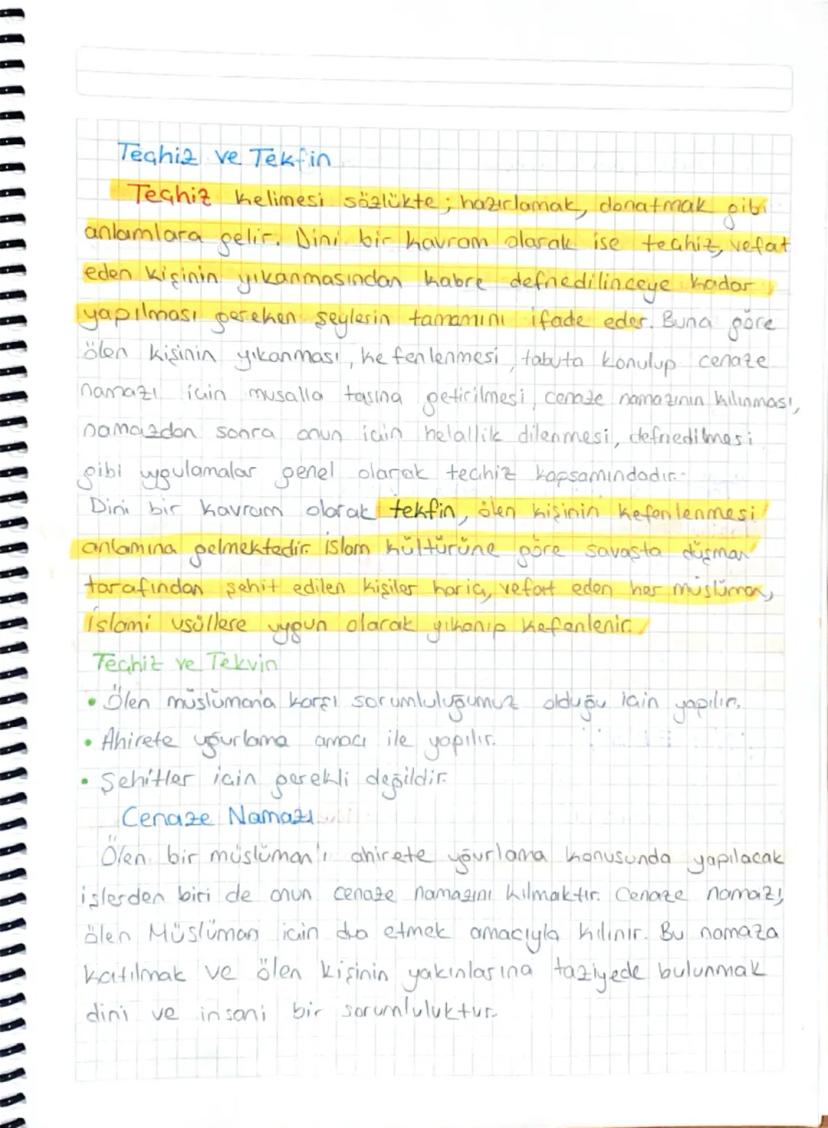 Teçhiz ve Tekfin
Teçhiz kelimesi sözlükte; hazırlamak, donatmak gibi
anlamlara gelir. Dini bir kavram olarak ise teçhiz, vefat
eden kişinin yıkanmasından kabre defnedilinceye kadar
yapılması gereken şeylerin tamamını ifade eder. Buna göre
ölen kişinin yıkanması, kefenlenmesi, tabuta konulup cenaze
namazı için musalla taşına getirilmesi, cenaze namazının kılınması,
namazdan sonra onun için helallik dilenmesi, defnedilmesi
gibi uygulamalar genel olarak teçhiz kapsamındadır.
Dini bir kavram olarak tekfin, ölen kişinin kefenlenmesi
anlamına gelmektedir. İslam kültürüne göre savaşta düşman
tarafından şehit edilen kişiler hariç, vefat eden her müslüman,
İslami usüllere uygun olarak yıkanıp kefenlenir.
Teçhiz ve Tekvin
• Ölen müslümana karşı sorumluluğumuz olduğu için yapılır.
• Ahirete uğurlama amacı ile yapılır.
• Şehitler için gerekli değildir.
Cenaze Namazı
Ölen bir müslüman'ı ahirete uğurlama konusunda yapılacak
işlerden biri de onun cenaze namazını kılmaktır. Cenaze namazı,
ölen Müslüman için dua etmek amacıyla kılınır. Bu namaza
katılmak ve ölen kişinin yakınlarına taziyede bulunmak
dini ve insani bir sorumluluktur.